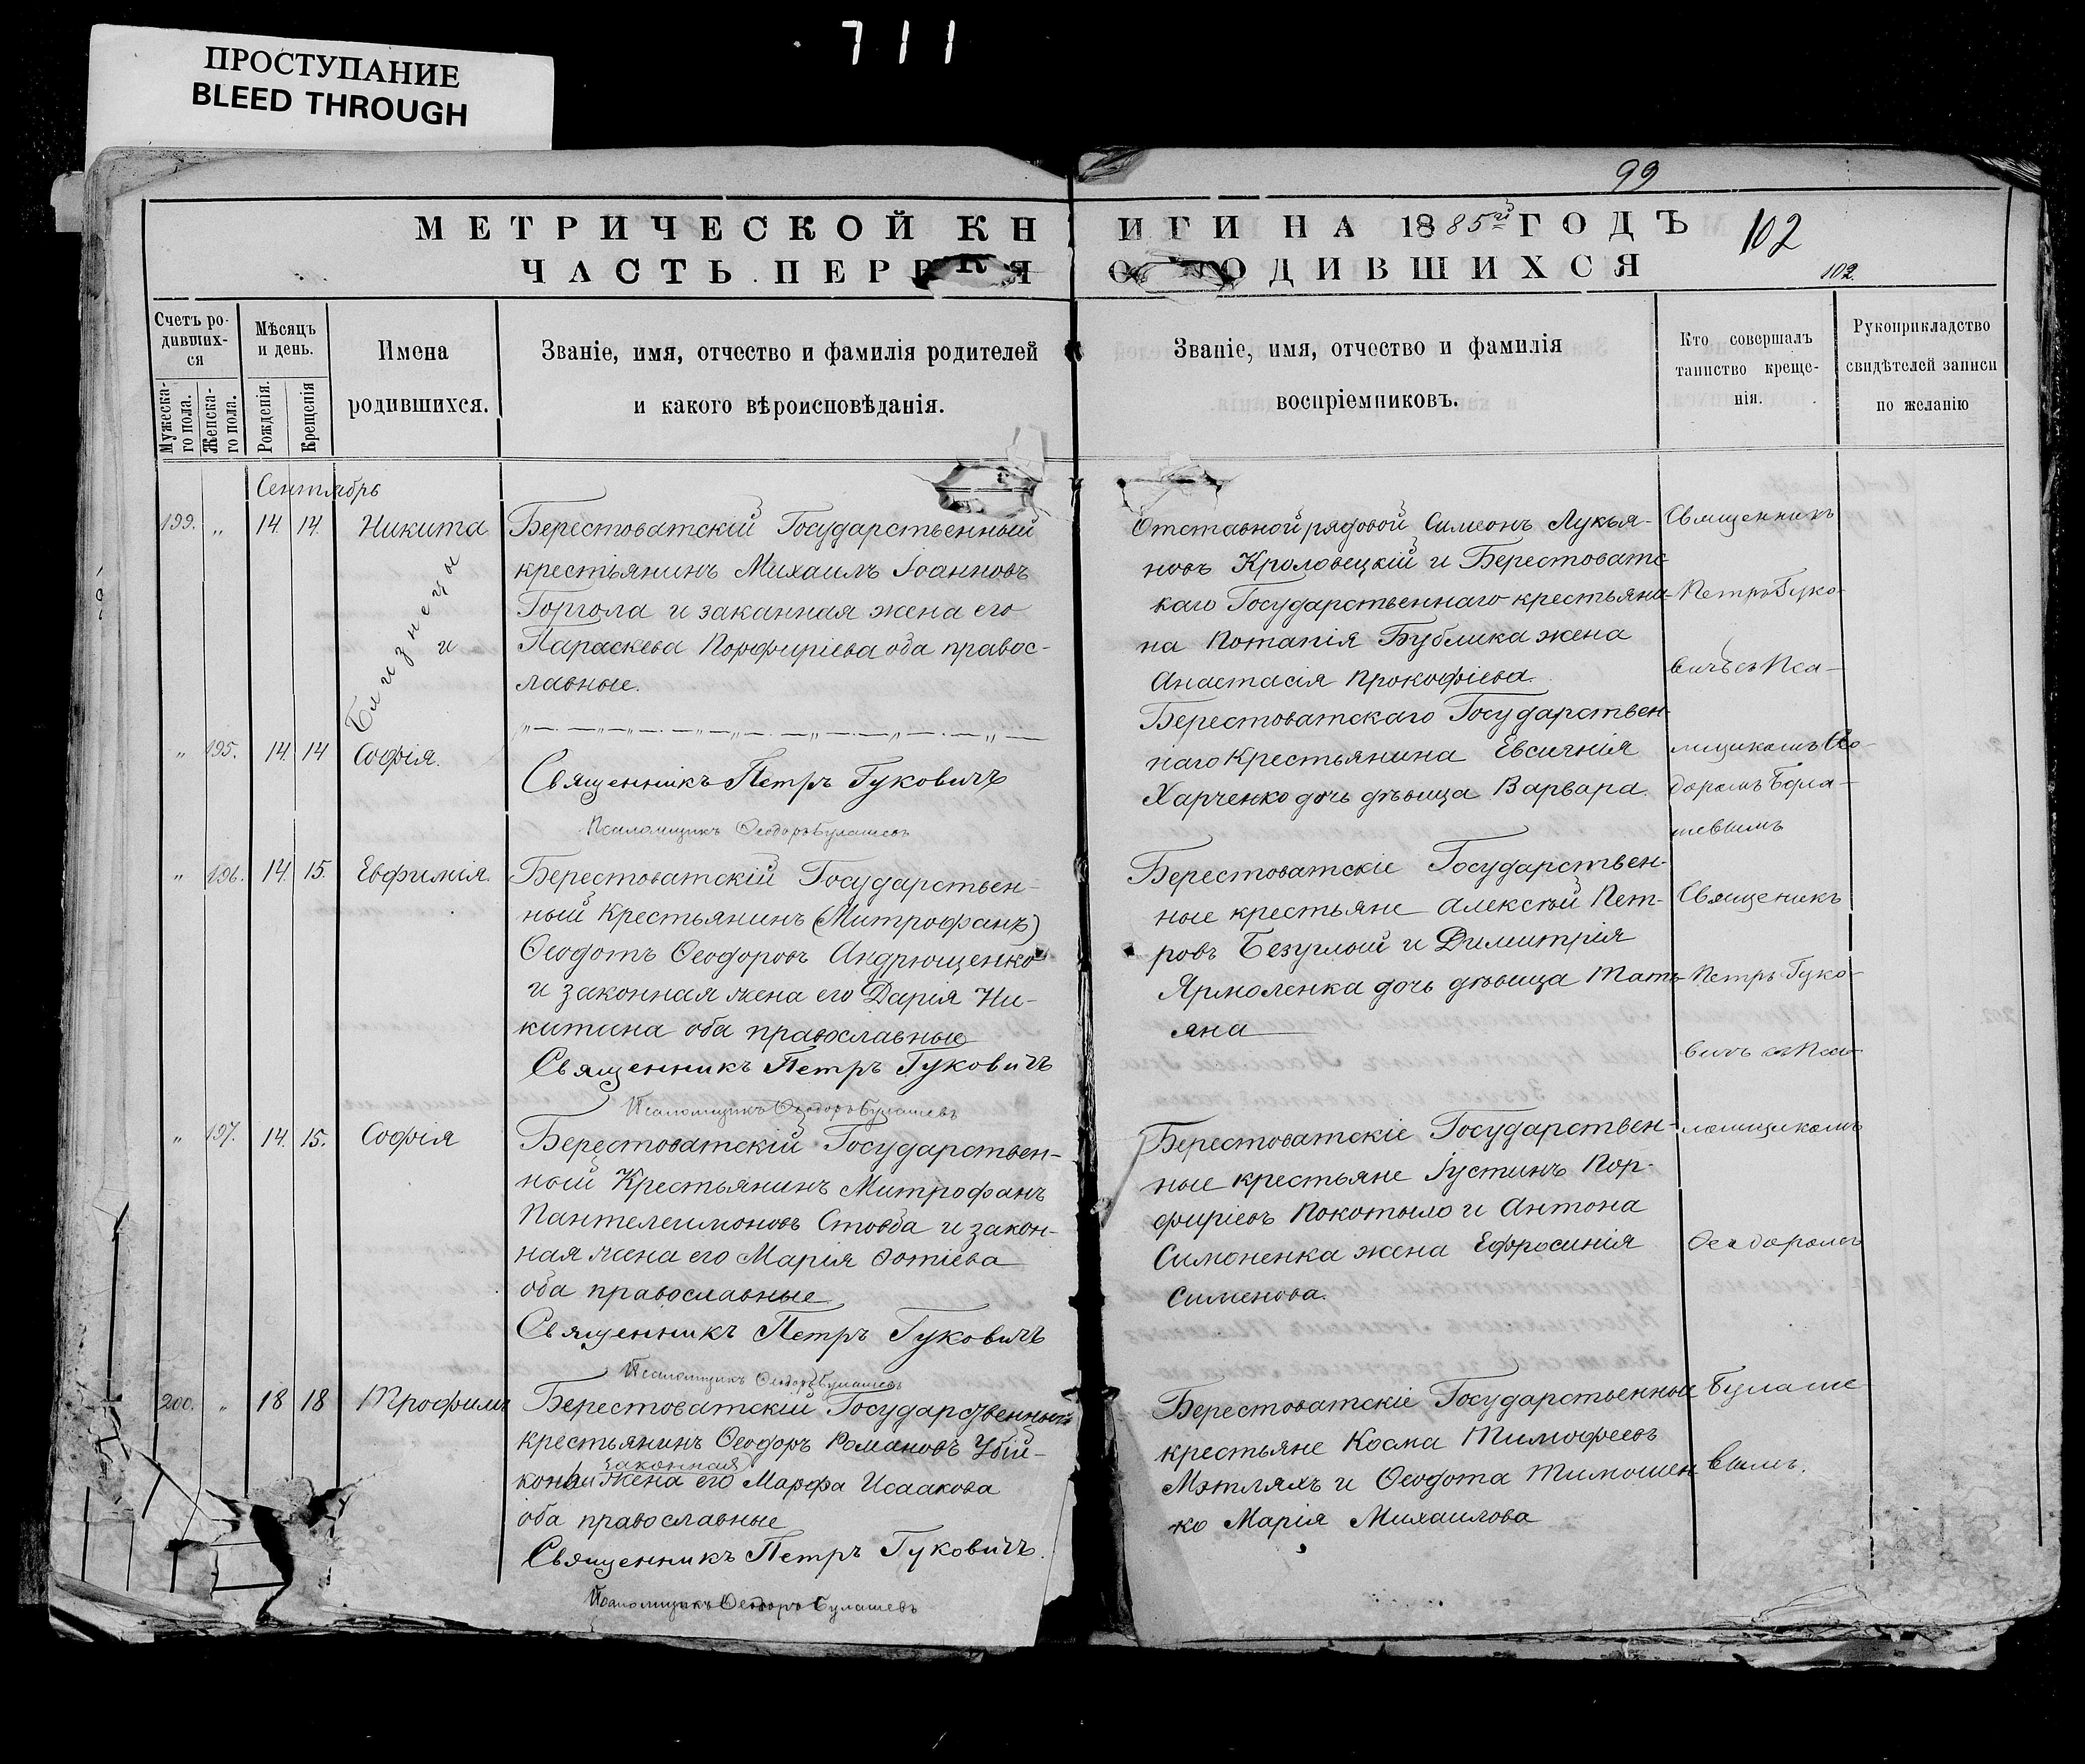 711
ПРОСТУПАНИЕ
BLEED THROUGH
99
МЕТРИЧЕСКОЙ КНИГИ НА 1885й ГОДЪ
102
ЧАСТЬ ПЕРВАЯ О РОДИВШИХСЯ
102.
Счетъ родившихся
Мужескаго пола.
Женскаго пола.
Мѣсяцъ и день.
Рожденія.
Крещенія
Имена родившихся.
Званіе, имя, отчество и фамилія родителей
и какого вѣроисповѣданія.
Званіе, имя, отчество и фамилія
воспріемниковъ.
Кто совершалъ
таинство креще-
нія.
Рукоприкладство
свидѣтелей записи
по желанію
Сентябрь
199. „ 14. 14. Никита
Близнецы
и
Берестоватскій Государственный
крестьянинъ Михаилъ Іоанновъ
Горгола и законная жена его
Параскева Порфиріева оба правос-
лавные.
„ 195. 14. 14 Софія.
Священникъ Петръ Гуковичъ
Псаломщикъ Ѳеодоръ Булашевъ
Отставной рядовой Симеонъ Лукья-
новъ Кроловецкій и Берестоватс-
каго Государственнаго крестьяни-
на Потапія Бублика жена
Анастасія Прокофіева.
Берестоватскаго Государствен-
наго Крестьянина Евсигнія
Харченко дочь дѣвица Варвара.
Священникъ
Петръ Гуко-
вичъ съ Пса-
ломщикомъ Ѳео-
доромъ Була-
шевымъ
„ 196. 14. 15. Евфимія.
Берестоватскій Государствен-
ный Крестьянинъ (Митрофанъ)
Ѳеодотъ Ѳеодоровъ Андрющенко
и законная жена его Дарія Ни-
китина оба православные
Священникъ Петръ Гуковичъ
Псаломщикъ Ѳеодоръ Булашевъ
Берестоватскіе Государствен-
ные крестьяне Алексѣй Пет-
ровъ Безуглый и Димитрія
Ярмоленка дочь дѣвица Тать-
яна
Священикъ
Петръ Гуко-
вичъ съ Пса-
„ 197. 14. 15. Софія
Берестоватскій Государствен-
ный Крестьянинъ Митрофанъ
Пантелеимоновъ Стовба и закон-
ная жена его Марія Фотіева
оба православные
Священникъ Петръ Гуковичъ
Псаломщикъ Ѳеодоръ Булашевъ
Берестоватскіе Государствен-
ные крестьяне Іустинъ Пор-
фиріевъ Покотыло и Антона
Симоненка жена Ефросинія
Сименова.
ломщикомъ
Ѳеодоромъ
200. „ 18 18 Трофимъ
Берестоватскій Государственный
крестьянинъ Ѳеодоръ Романовъ Убій-
законная
конь и жена его Марфа Исаакова
оба православные
Священникъ Петръ Гуковичъ.
Псаломщикъ Ѳеодоръ Булашевъ
Берестоватскіе Государственные
крестьяне Косма Тимофеевъ
Мэтляхъ и Ѳеодота Тимошен
ко Марія Михаилова
Булаше
вымъ.